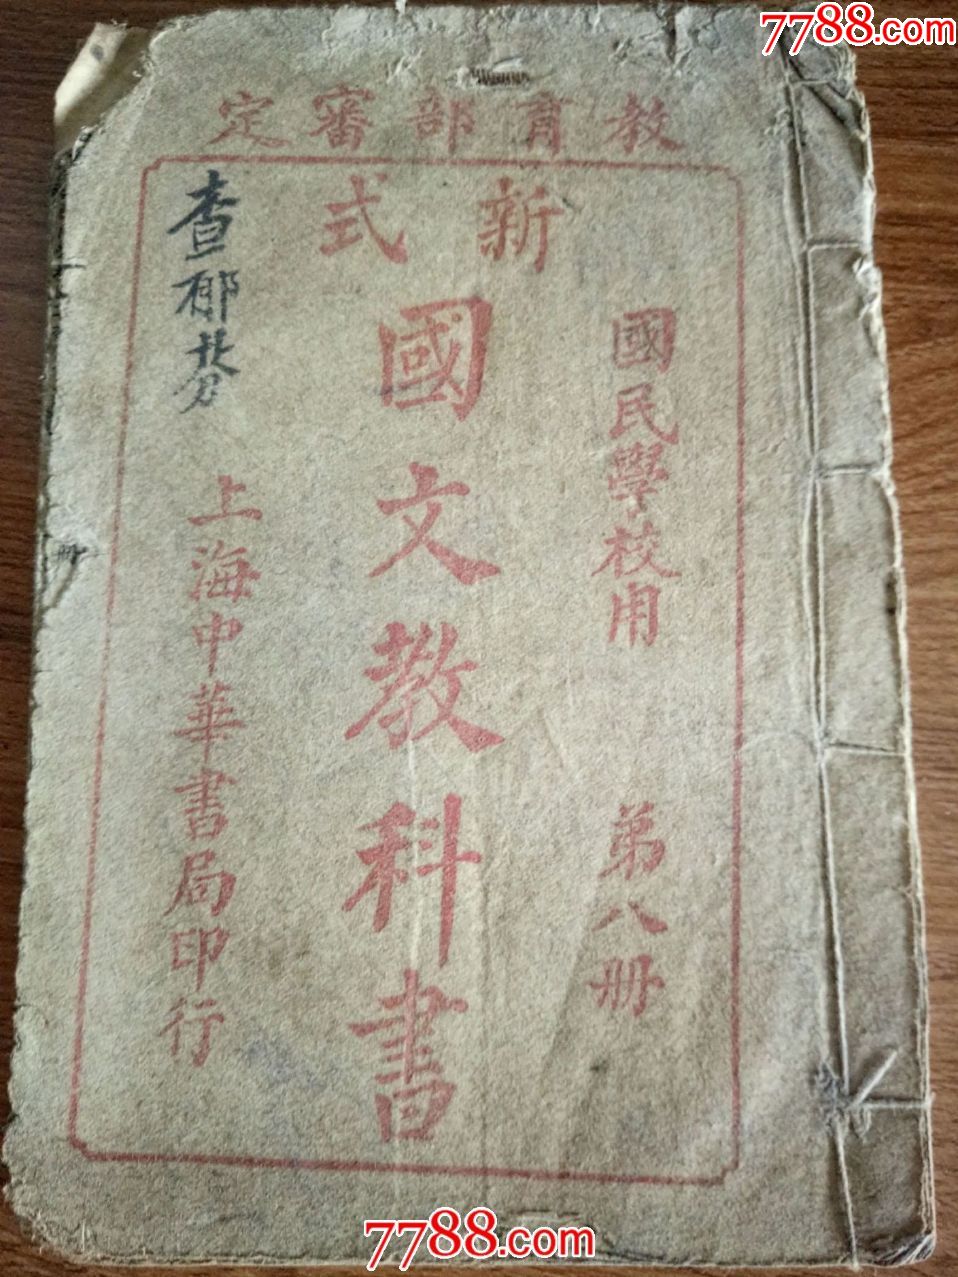 7788.com
教育部審定
新式
國民學校用 第八册
國文教科書
上海中華書局印行
查郁
7788.com